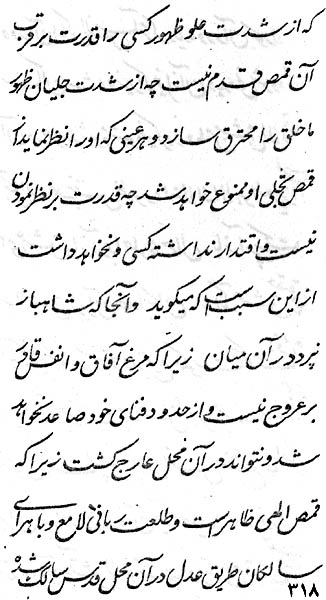 که از شدت علو ظهور کسی را قدرت بر قرب
آن قمص قدم نیست چه از شدت جلیان ظهور
ما خلق را محترق سازد و هر عینی که او را نظر نماید از
قمص تجلی او ممنوع خواهد شد چه قدرت بر نظر نمودن
نیست و اقتدار نداشته کسی و نخواهد داشت
از این سبب است که میگوید و آنجا که شاهباز
نپرد در آن میان زیرا که مرغ آفاق و انفس قادر
بر عروج نیست و از حدود فنای خود صاعد نخواهد
شد و نتواند در آن محل عارج گشت زیرا که
قمص الهی ظاهر است و طلعت ربانی لامع و باهر ای
سالکان طریق عدل در آن محل قدس سالک شده
۳۱۸